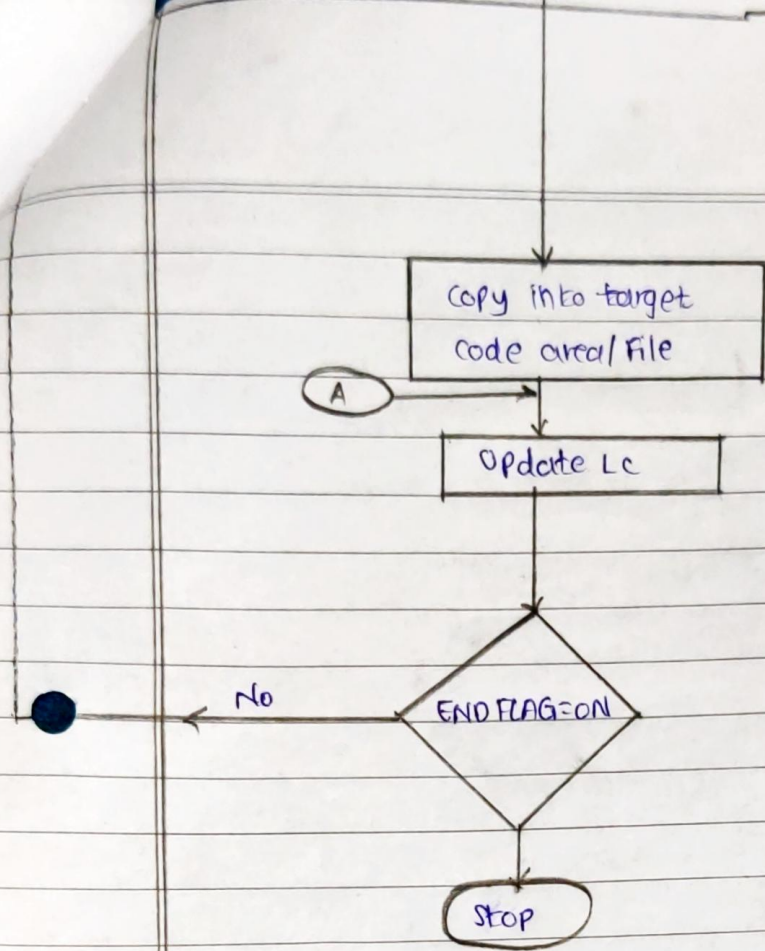 Copy into target
Code area/File
A
Update LC
No
END FLAG=ON
Stop